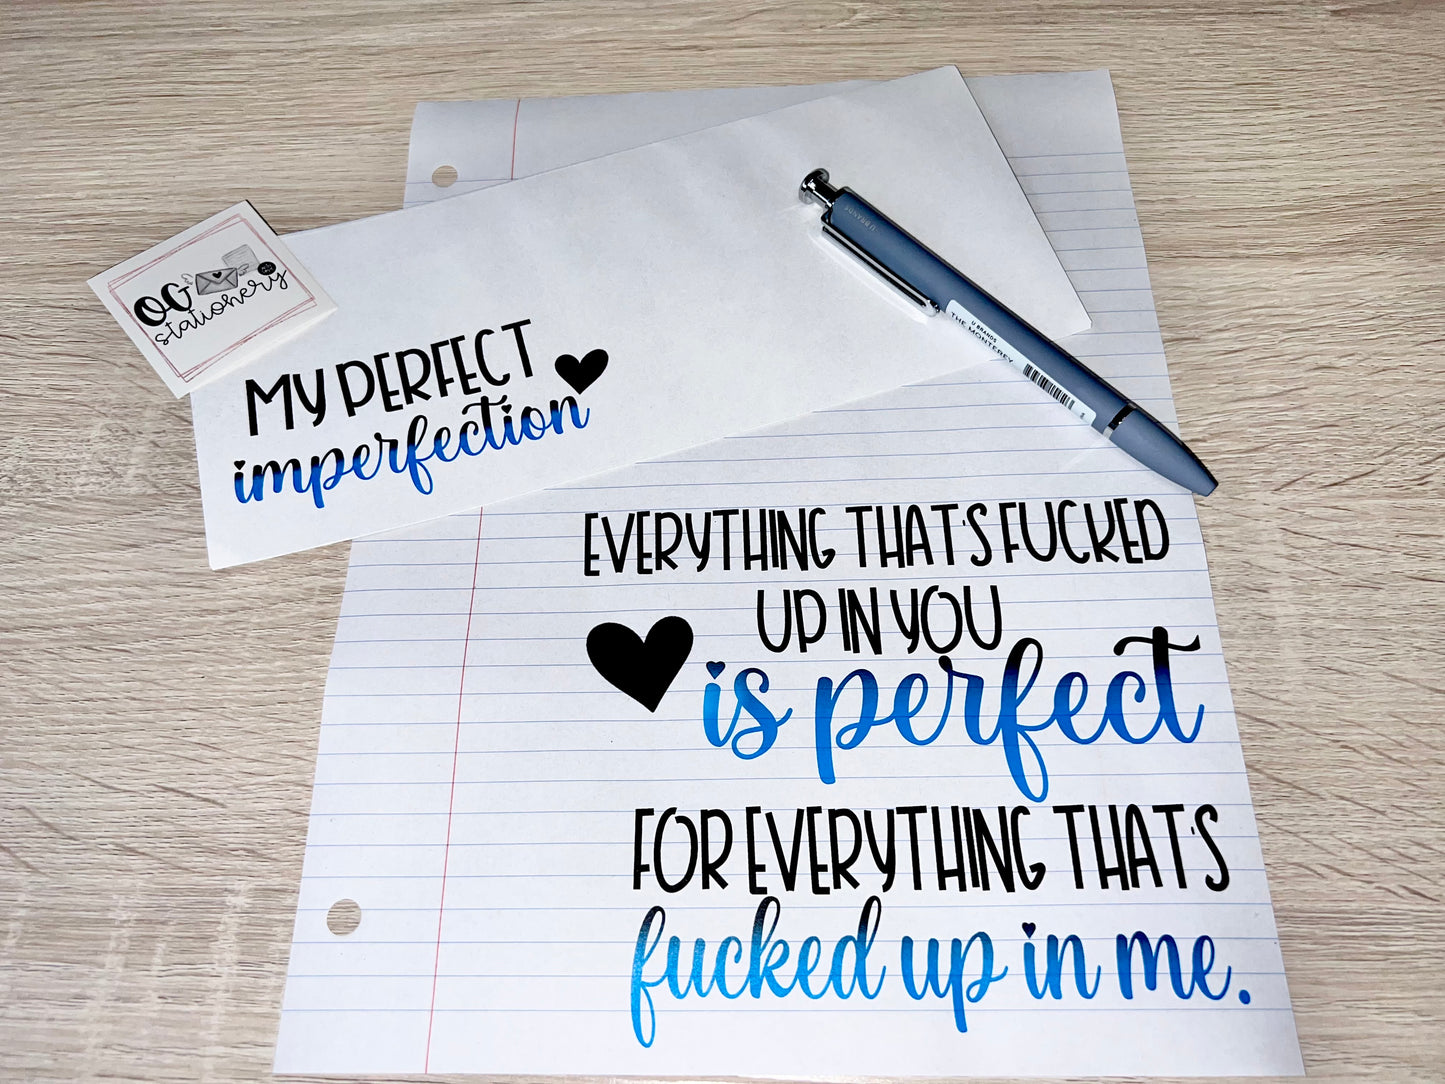 OG
stationery
MY PERFECT
imperfection
U BRANDS
U BRANDS
THE MONTEREY
EVERYTHING THAT'S FUCKED
UP IN YOU
is perfect
FOR EVERYTHING THAT'S
fucked up in me.